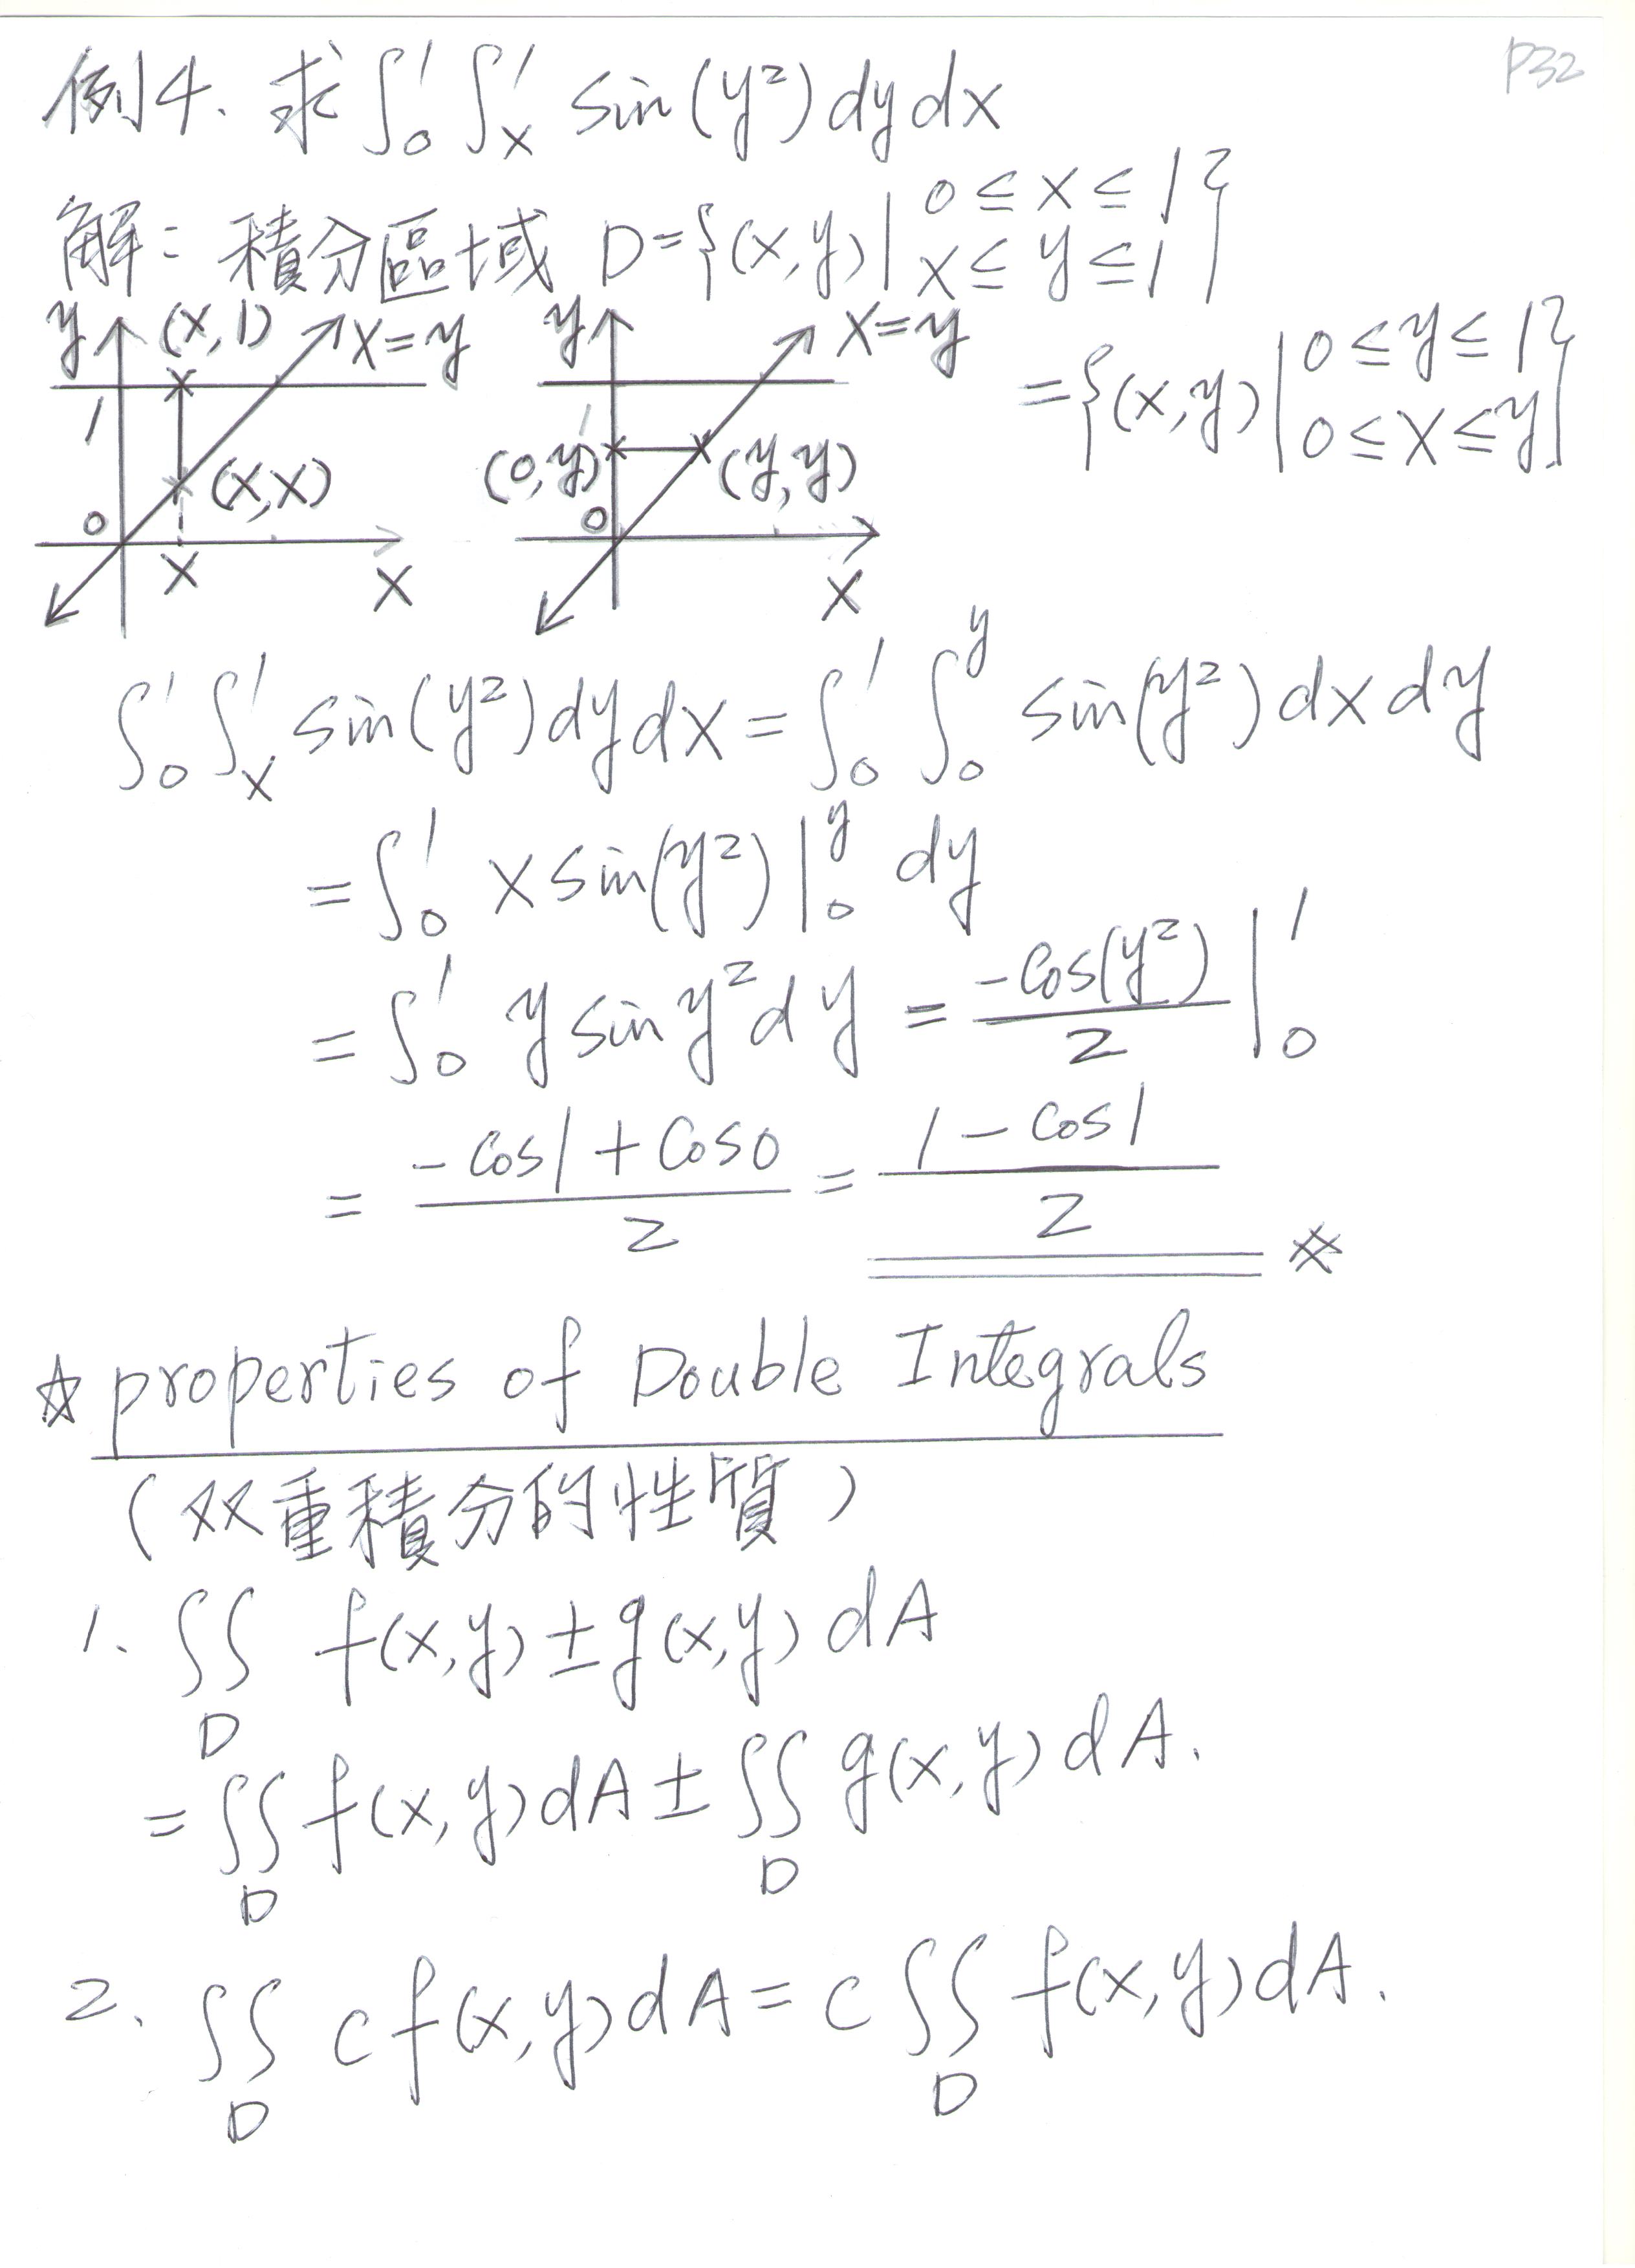 P32
例4. 求 ∫₀¹ ∫ₓ¹ sin(y²) dy dx
解: 積分區域 D = {(x,y) | 0 ≤ x ≤ 1, x ≤ y ≤ 1}
= {(x,y) | 0 ≤ y ≤ 1, 0 ≤ x ≤ y}
y (x,1) x=y
1
(x,x)
0
x x
y x=y
1
(0,y) (y,y)
0
x
∫₀¹ ∫ₓ¹ sin(y²) dy dx = ∫₀¹ ∫₀^y sin(y²) dx dy
= ∫₀¹ x sin(y²) |₀^y dy
= ∫₀¹ y sin y² dy = -cos(y²)/2 |₀¹
= (-cos1 + cos0)/2 = (1 - cos1)/2 ※
☆ properties of Double Integrals
(双重積分的性質)
1. ∬_D f(x,y) ± g(x,y) dA
= ∬_D f(x,y) dA ± ∬_D g(x,y) dA.
2. ∬_D c f(x,y) dA = c ∬_D f(x,y) dA.